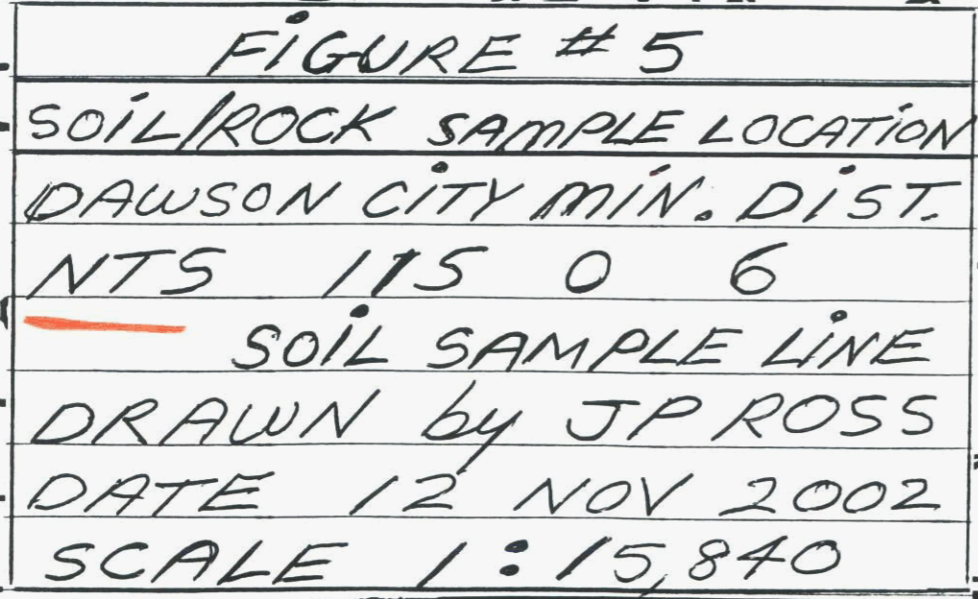 FIGURE # 5
SOIL/ROCK SAMPLE LOCATION
DAWSON CITY MIN. DIST.
NTS 115 O 6
SOIL SAMPLE LINE
DRAWN by JP ROSS
DATE 12 NOV 2002
SCALE 1:15,840